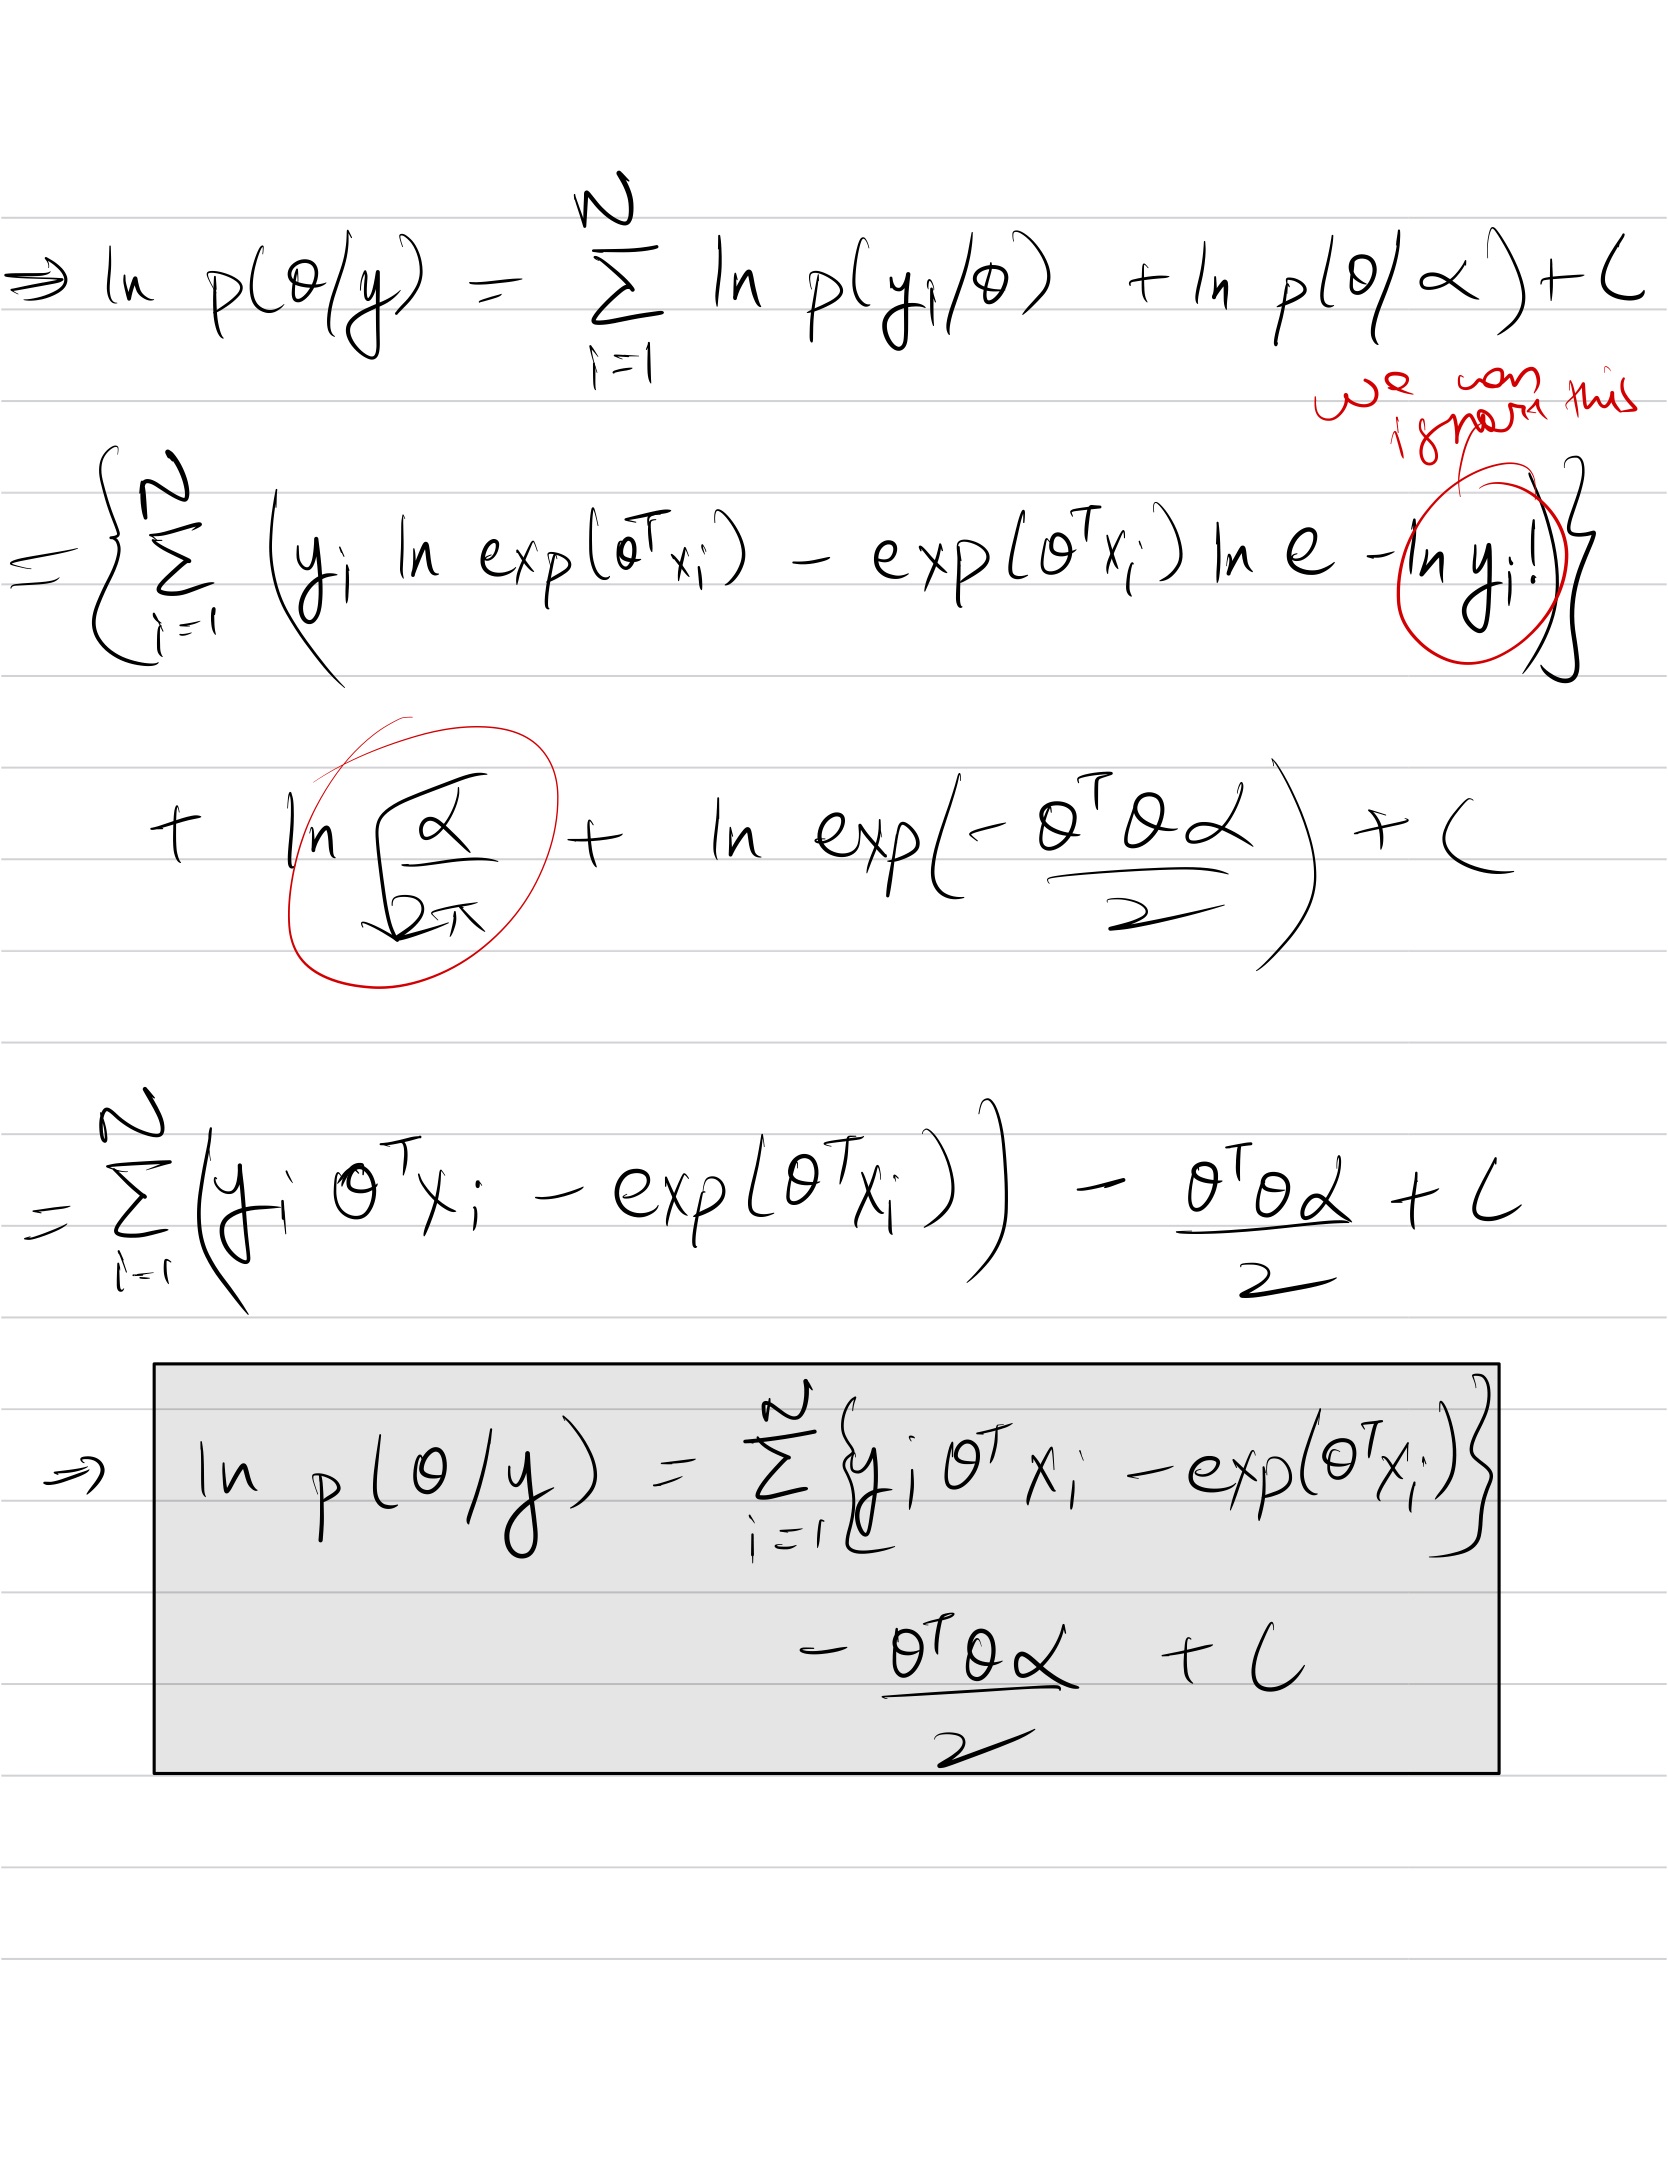 ⇒ ln p(θ/y) = Σ_{i=1}^{N} ln p(y_i/θ) + ln p(θ/α) + C
we can
ignore this
= { Σ_{i=1}^{N} ( y_i ln exp(θ^T x_i) − exp(θ^T x_i) ln e − ln y_i! ) }
+ ln √(α/2π) + ln exp( −θ^T θ α / 2 ) + C
= Σ_{i=1}^{N} ( y_i θ^T x_i − exp(θ^T x_i) ) − θ^T θ α / 2 + C
⇒ ln p(θ/y) = Σ_{i=1}^{N} { y_i θ^T x_i − exp(θ^T x_i) }
− θ^T θ α / 2 + C